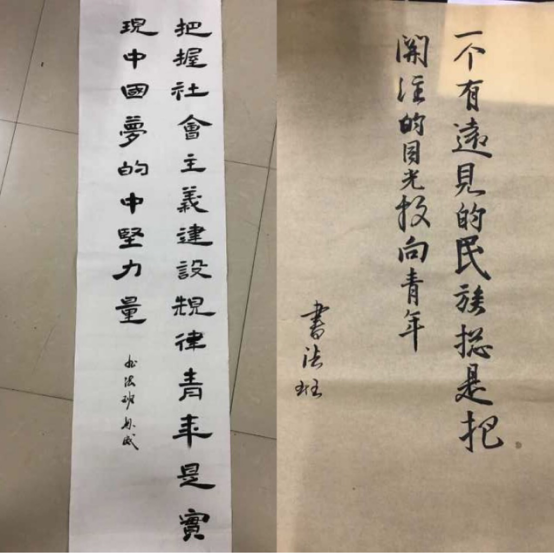 把握社會主義建設規律青年是實
現中國夢的中堅力量
书法班
一个有遠見的民族總是把
關注的目光投向青年
書法班